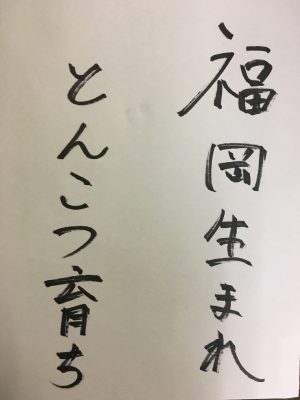 福岡生まれ
とんこつ育ち